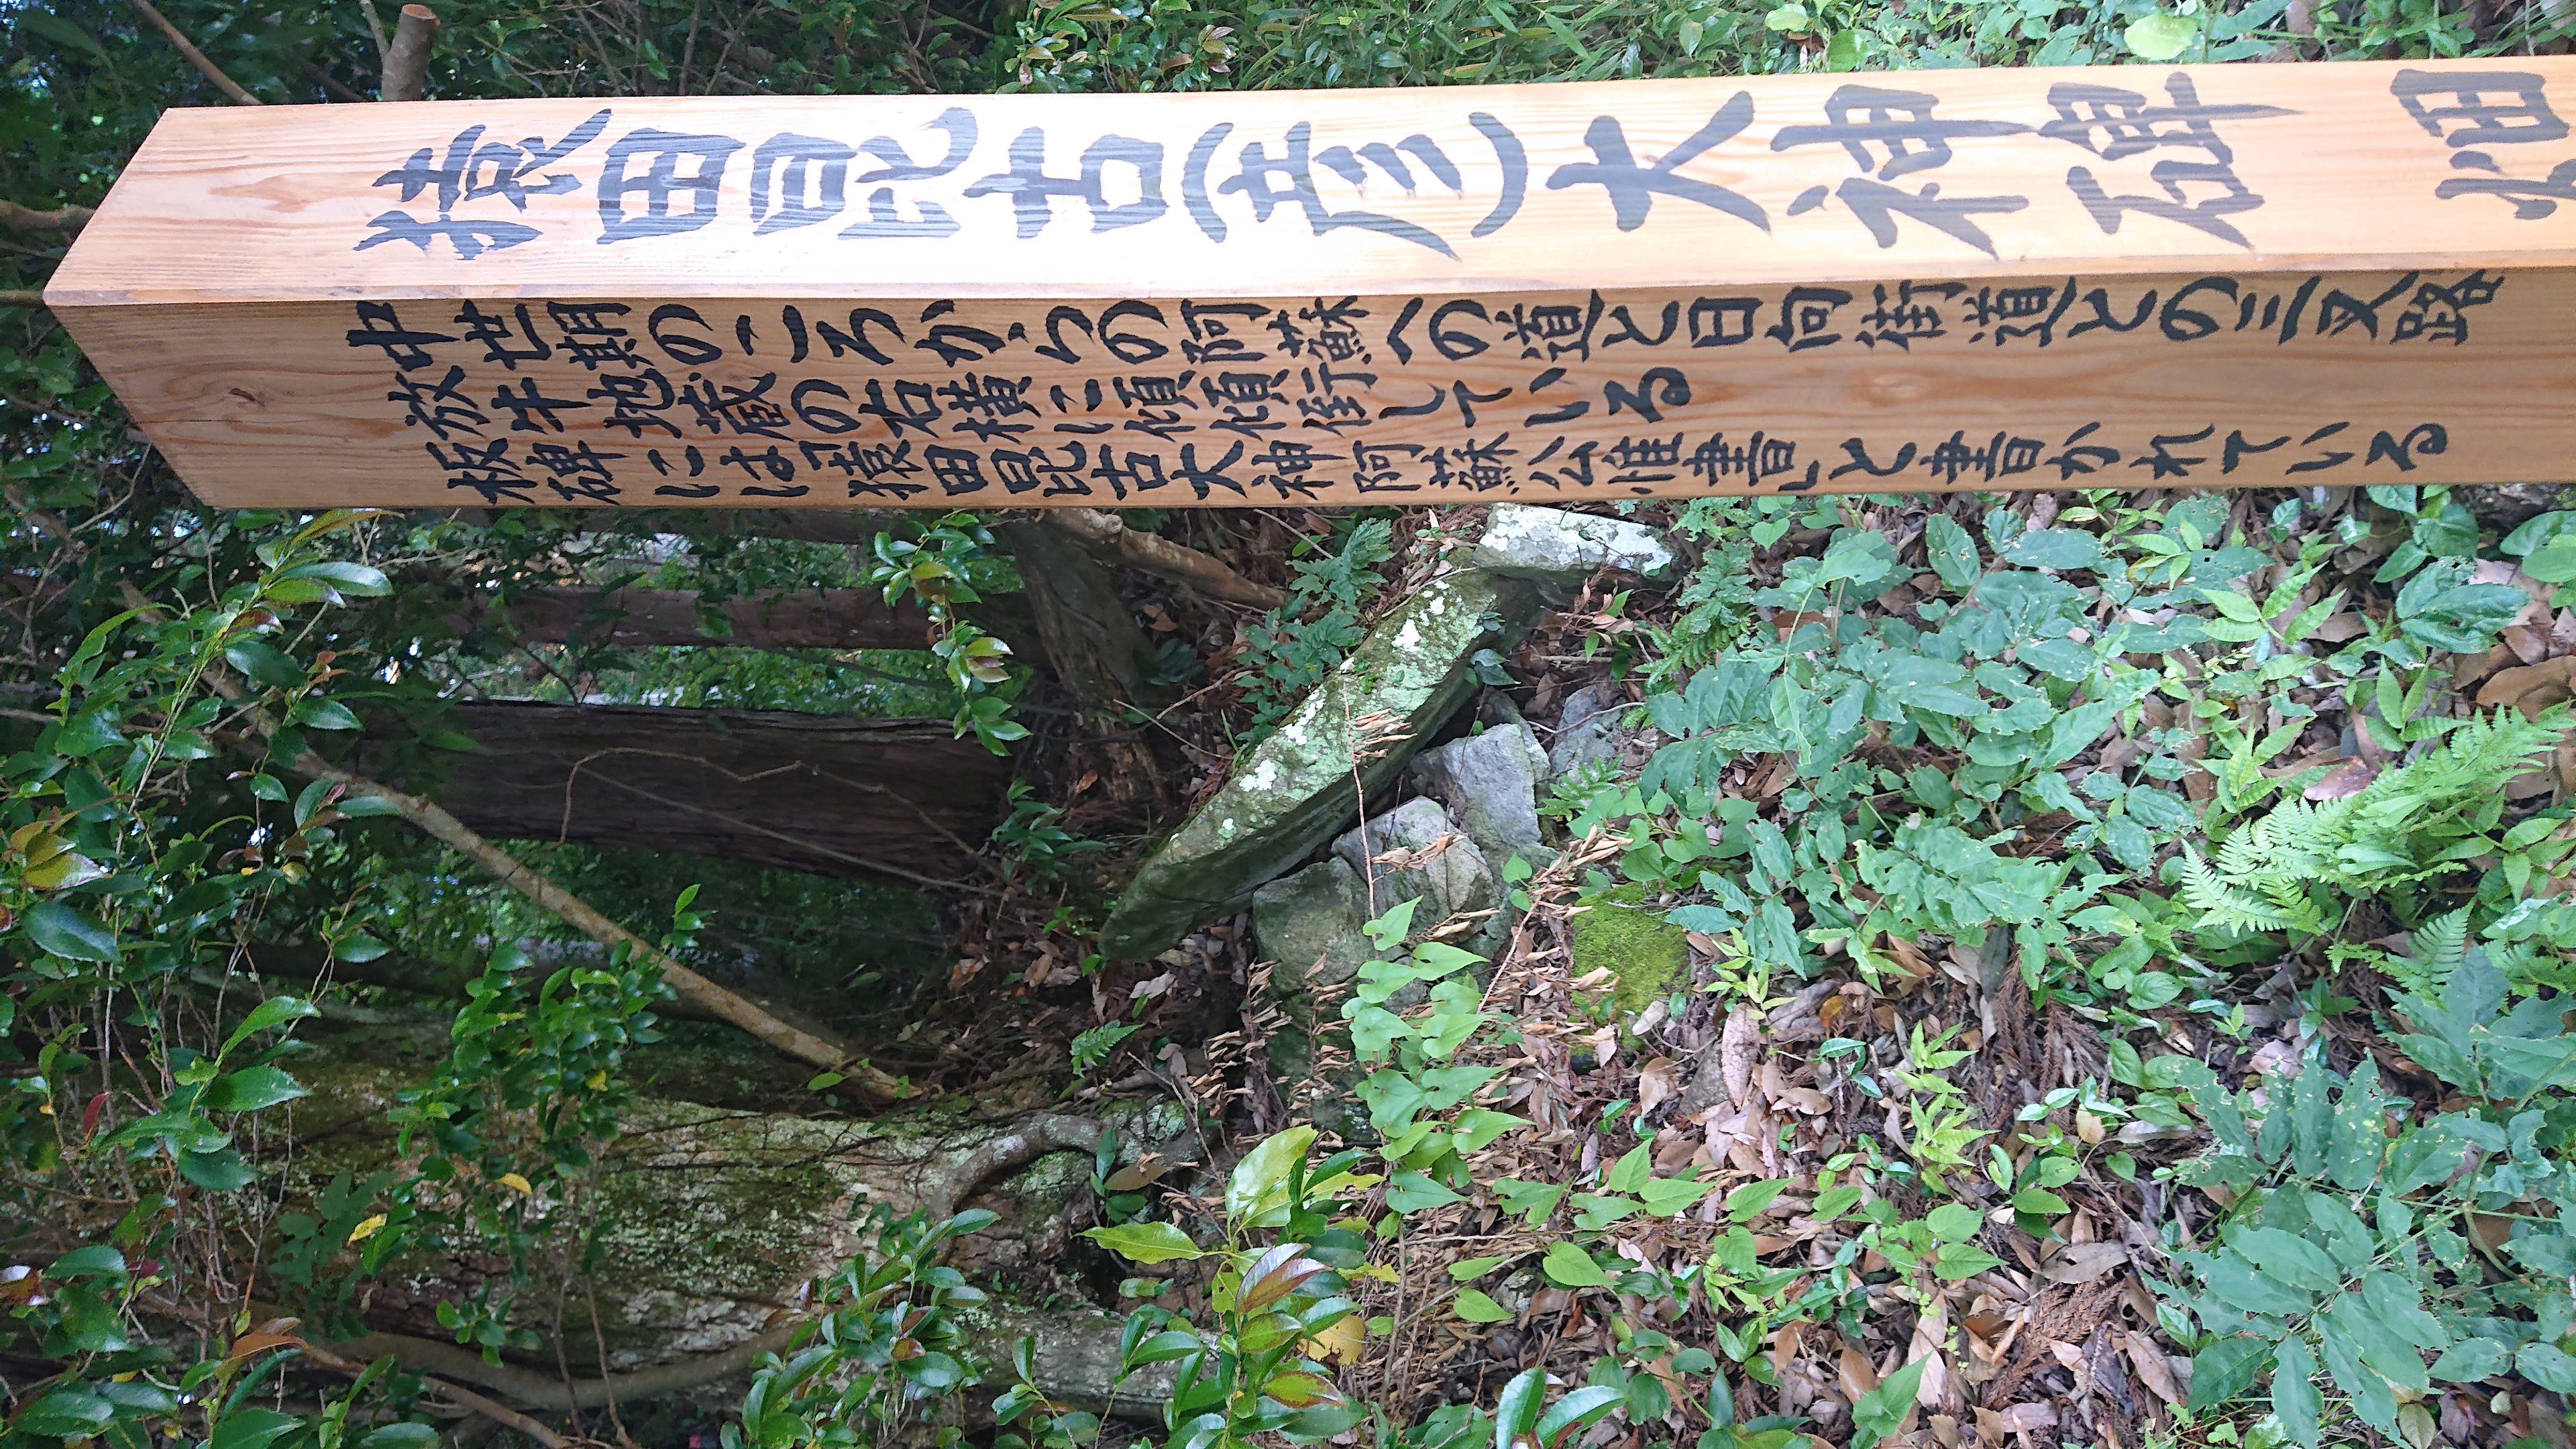 猿田毘古(彦)大神碑 畑
中世期のころからの阿蘇への道と日向街道との三叉路
放牛地蔵の右横にしている
板碑には「猿田毘古大神 阿蘇公惟書」と書かれている